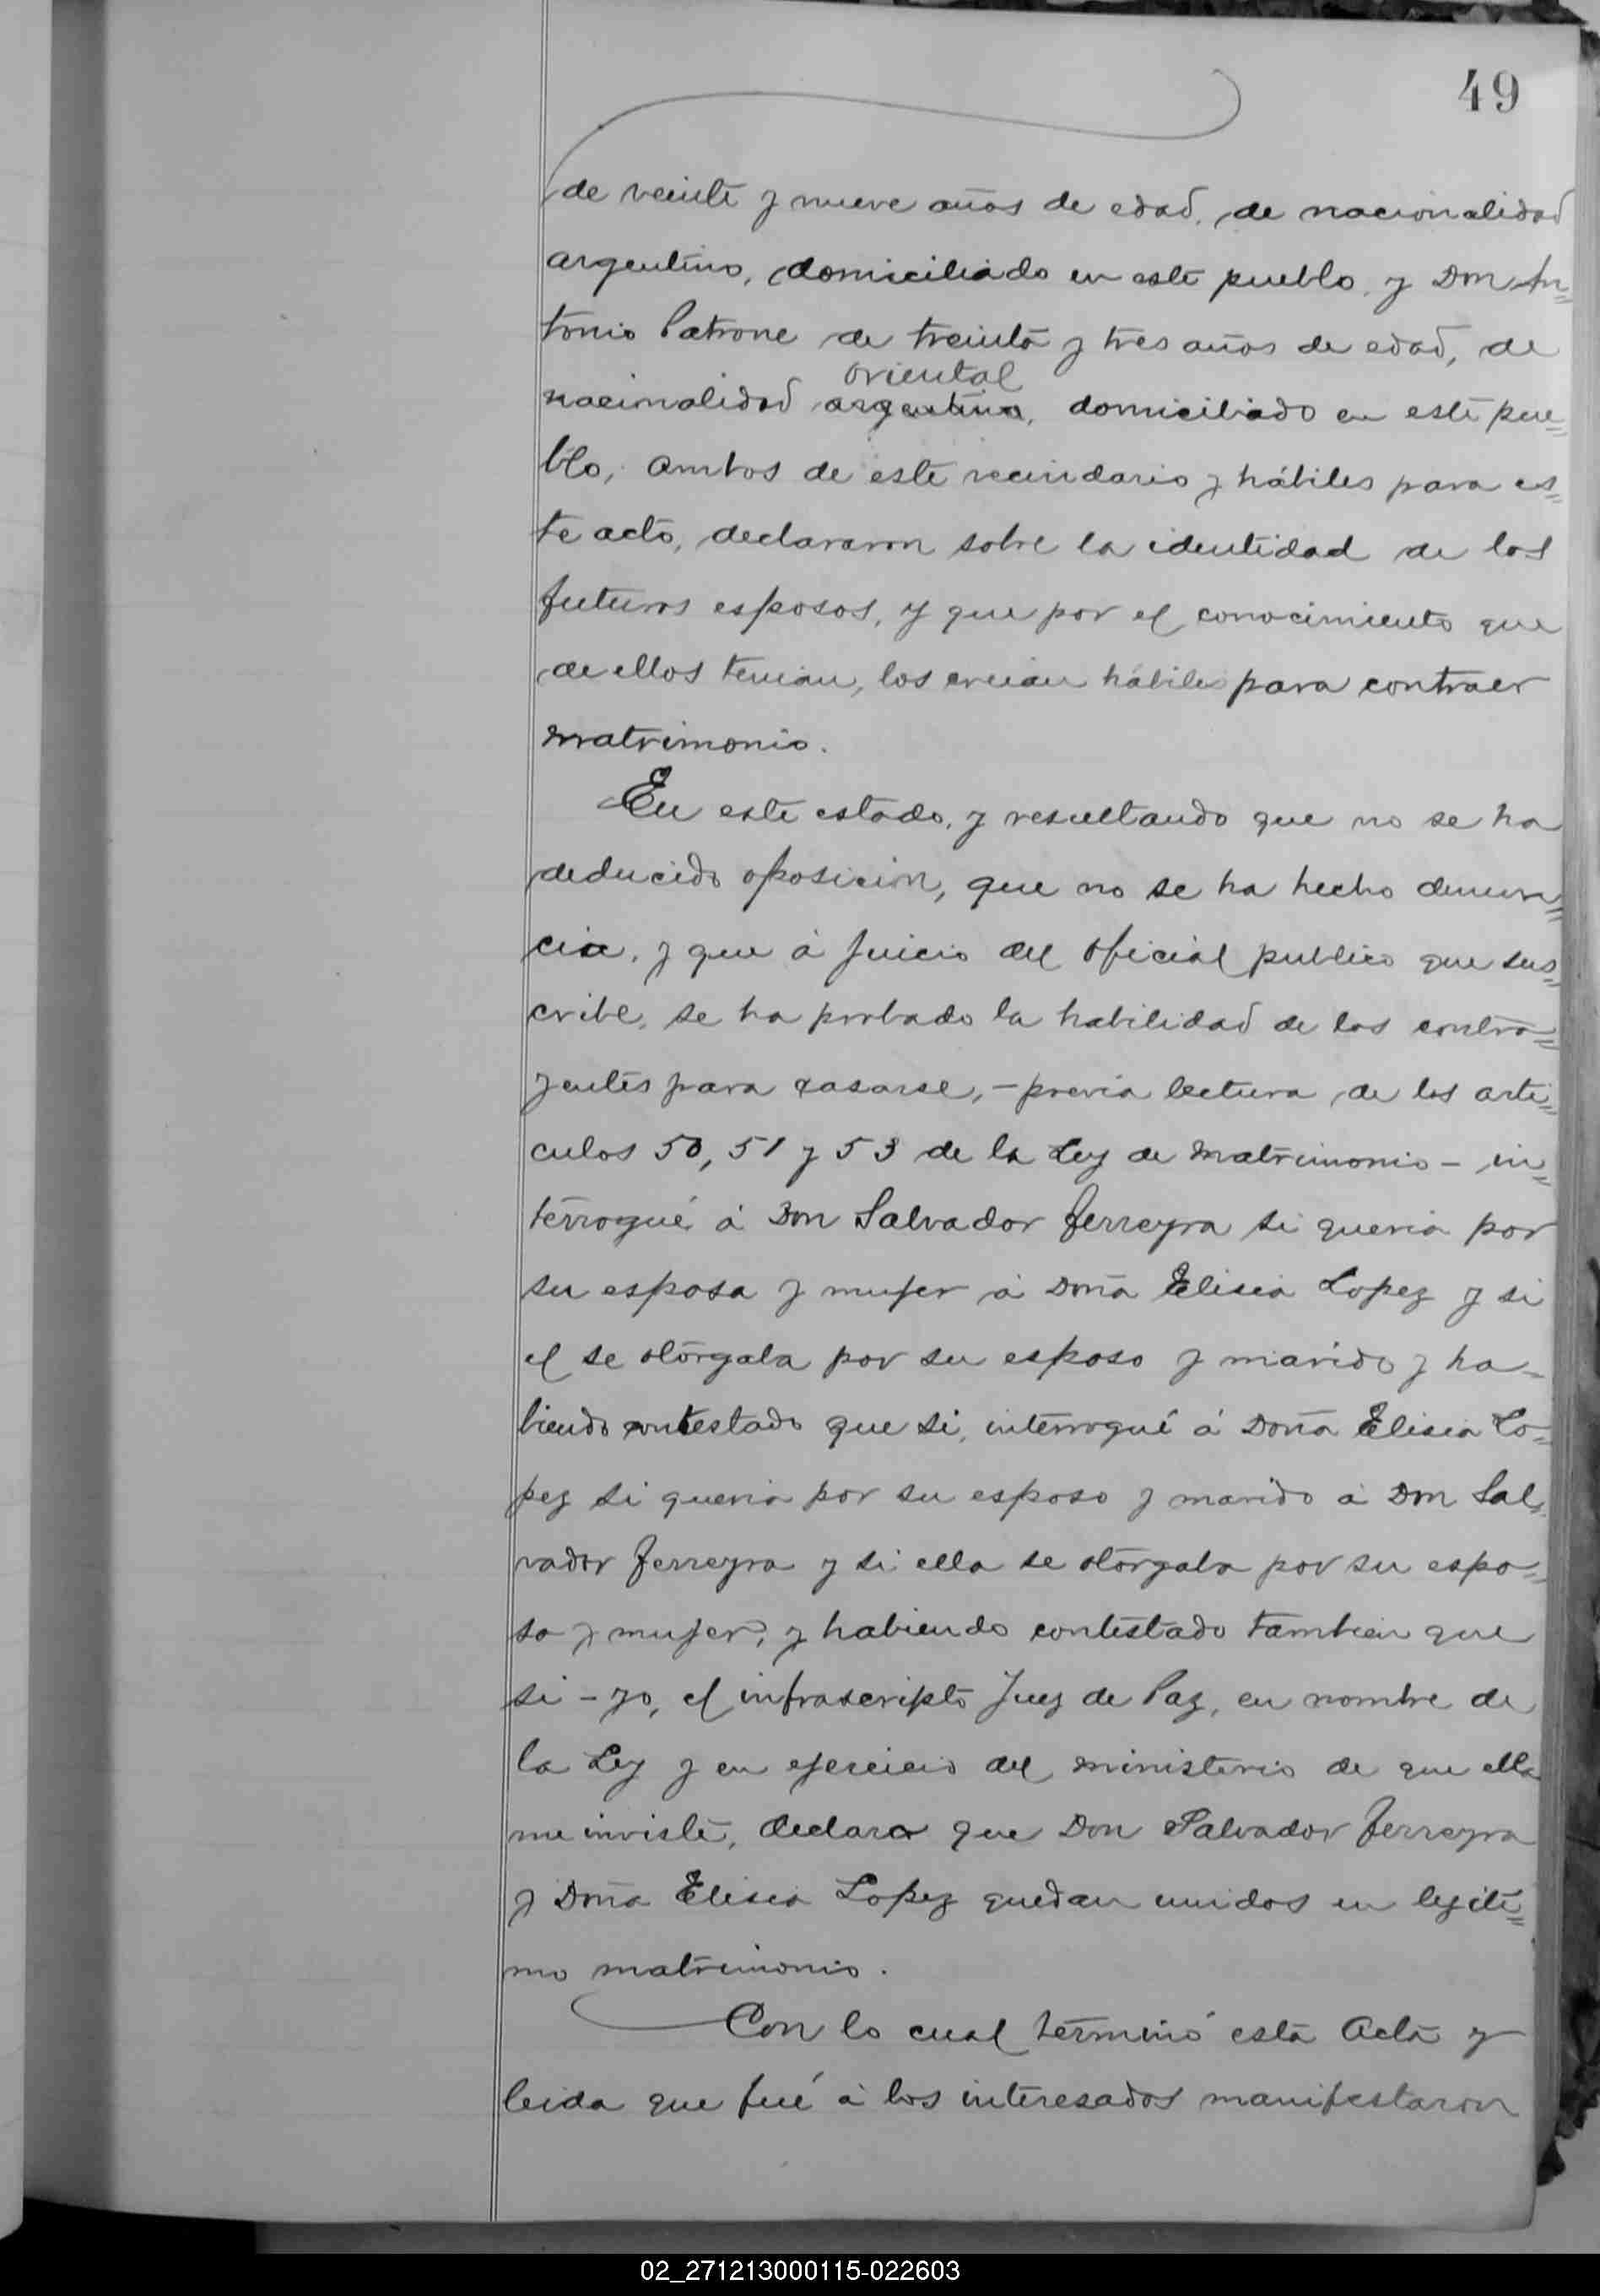 49
de veinte y nueve años de edad, de nacionalidad
argentino, domiciliado en este pueblo, y Don An=
tonio Patrone de treinta y tres años de edad, de
oriental
nacionalidad argentina, domiciliado en este pue=
blo, ambos de este vecindario y hábiles para es=
te acto, declararon sobre la identidad de los
futuros esposos, y que por el conocimiento que
de ellos tenian, los creian hábiles para contraer
matrimonio.
En este estado, y resultando que no se ha
deducido oposicion, que no se ha hecho denun=
cia, y que á juicio del oficial publico que sus=
cribe, se ha probado la habilidad de los contra=
yentes para casarse, - previa lectura de los arti=
culos 50, 51 y 53 de la Ley de Matrimonio - in=
terrogué á Don Salvador Ferreyra si queria por
su esposa y mujer á Doña Elisea Lopez y si
el se otorgaba por su esposo y marido y ha=
biendo contestado que si, interrogué á Doña Elisea Lo=
pez si queria por su esposo y marido á Don Sal=
vador Ferreyra y si ella se otorgaba por su espo=
sa y mujer, y habiendo contestado tambien que
si - yo, el infrascripto Juez de Paz, en nombre de
la Ley y en ejercicio del ministerio de que ella
me inviste, declaro que Don Salvador Ferreyra
y Doña Elisea Lopez quedan unidos en legiti=
mo matrimonio.
Con lo cual terminó esta Acta y
leida que fué á los interesados manifestaron
02_271213000115-022603